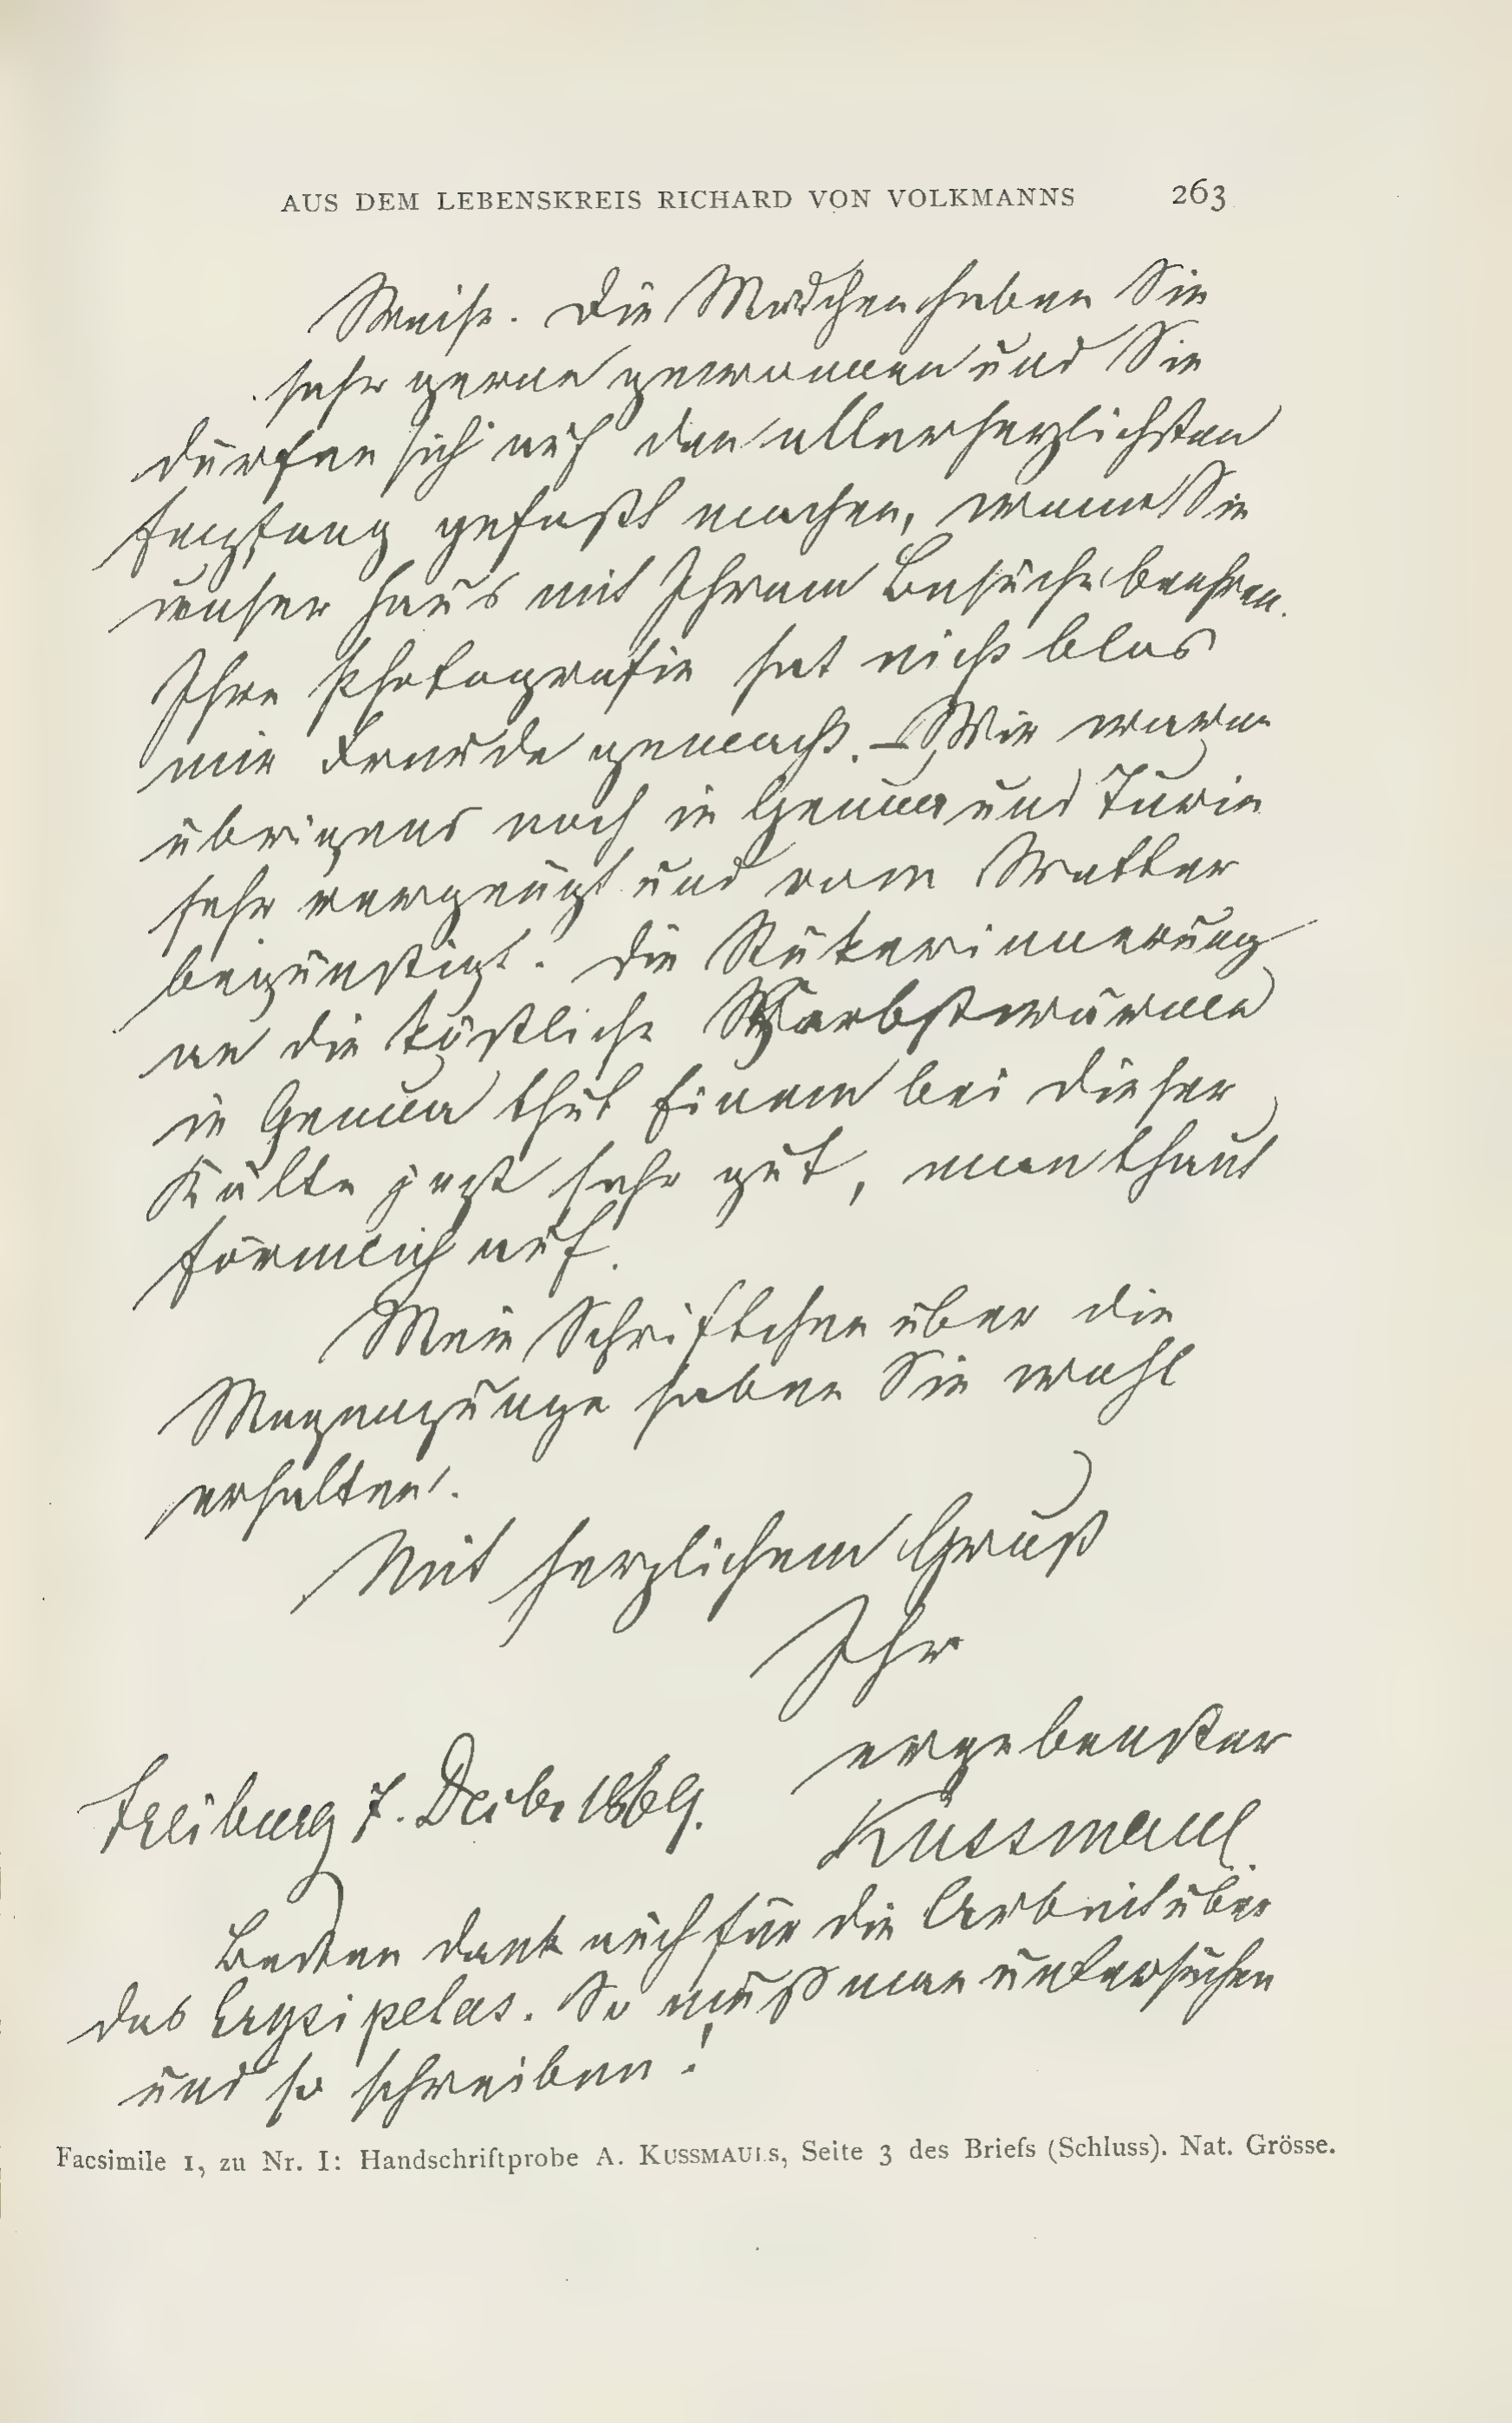 AUS DEM LEBENSKREIS RICHARD VON VOLKMANNS 263
Weise. Die Mädchen haben Sie
sehr gerne gewonnen und Sie
dürfen sich auf den allerherzlichsten
Empfang gefaßt machen, wenn Sie
unser Haus mit Ihrem Besuche beehren.
Ihre Photografie hat nicht blos
mir Freude gemacht. – Wir waren
übrigens noch in Genua und Turin
sehr vergnügt und vom Wetter
begünstigt. Die Rükerinnerung
an die köstliche Herbstwärme
in Genua thut Einem bei dieser
Kälte jezt sehr gut, man thaut
förmlich auf.
Mein Schriftchen über die
Magenpumpe haben Sie wohl
erhalten.
Mit herzlichem Gruß
Ihr
ergebenster
Freiburg 7. Decbr 1869.
Kussmaul
Besten Dank auch für die Arbeit über
das Erysipelas. So muß man untersuchen
und so schreiben!
Facsimile 1, zu Nr. I: Handschriftprobe A. KUSSMAULS, Seite 3 des Briefs (Schluss). Nat. Grösse.